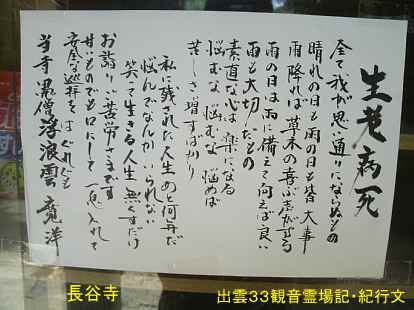 生老病死
全て我が思い通りにならぬもの
晴れの日も雨の日も皆大事
雨降れば草木の喜ぶ声がする
雨の日は雨に備えて向えば良い
雨も大切たもの
素直な心は楽になる
悩むな悩むな悩めば
苦しさ増すばかり
私に残された人生あと何年だ
悩んでなんかいられない
笑って生きる人生無くすだけ
お詣りご苦労さまです
安全な巡拝をはぐれぐれも
甘いものでも口にして一息入れて
当寺 愚僧 浮浪雲 寛洋
長谷寺
出雲33観音霊場記・紀行文